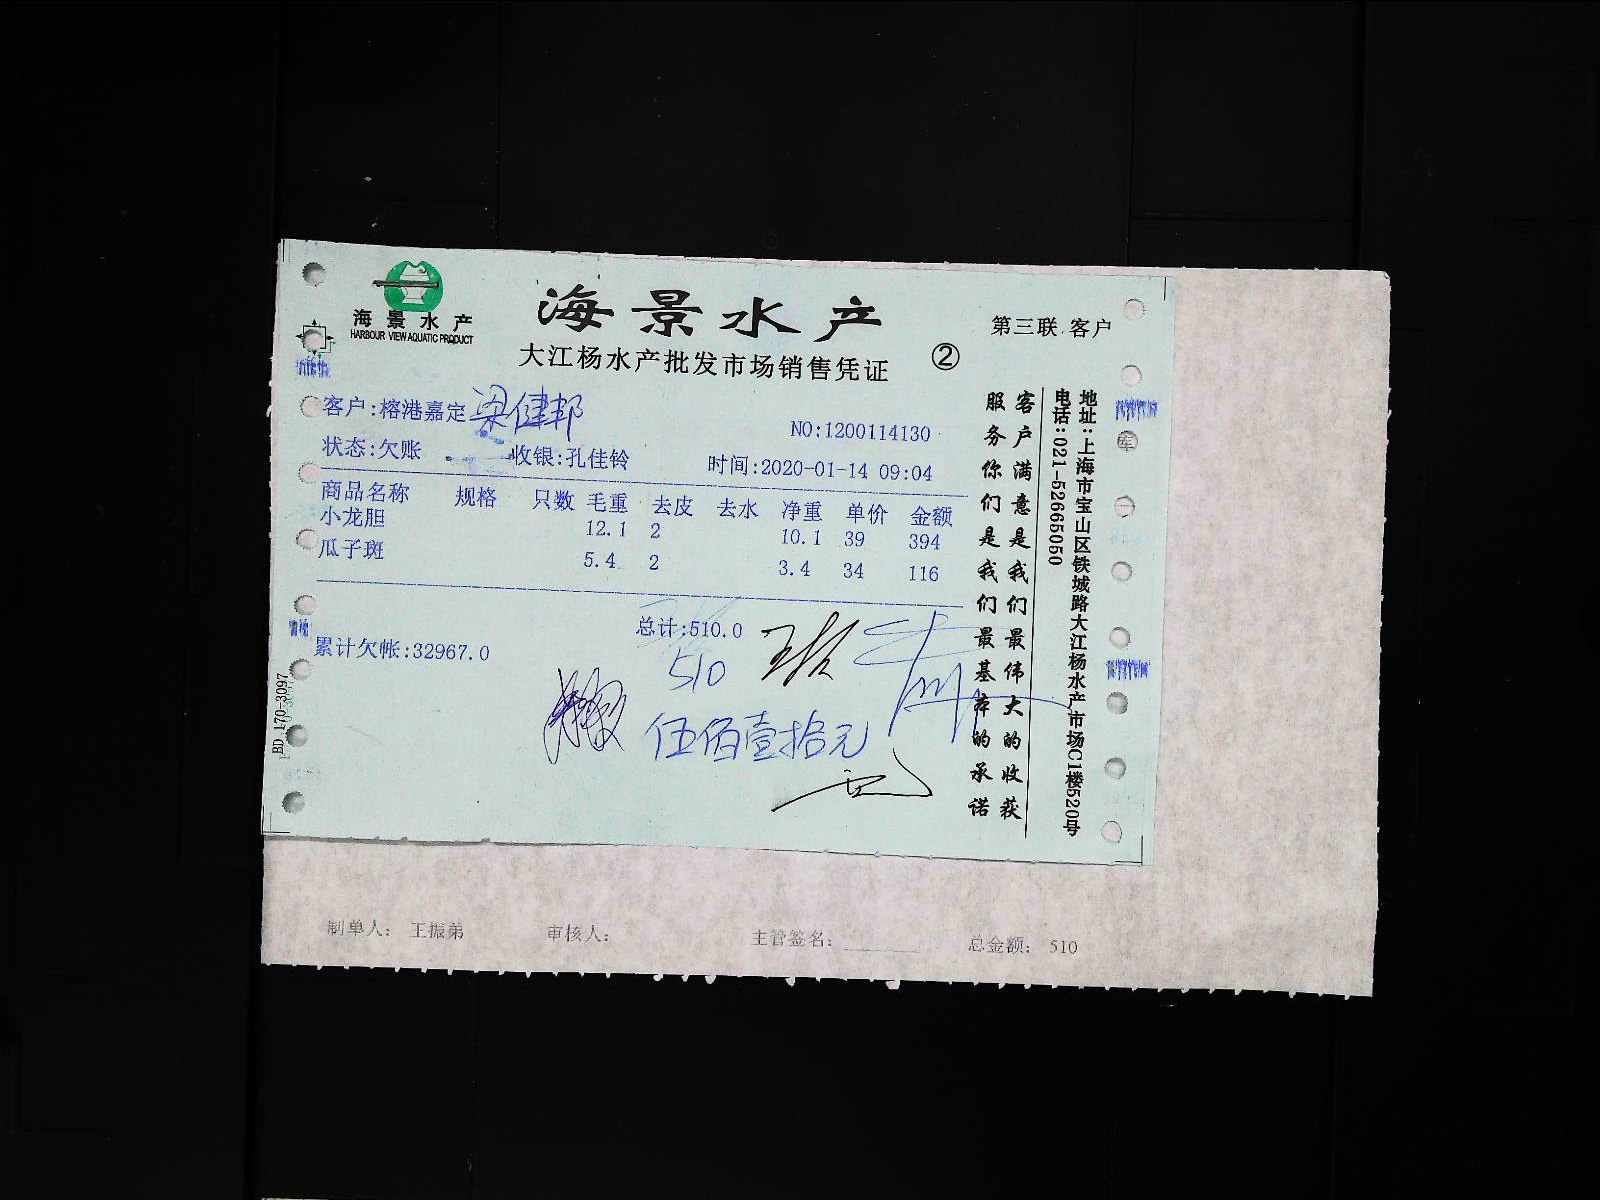 海景水产
HARBOUR VIEW AQUATIC PRODUCT
海景水产
大江杨水产批发市场销售凭证 ②
第三联 客户
客户:榕港嘉定 梁健邦
NO:1200114130
状态:欠账 收银:孔佳铃 时间:2020-01-14 09:04
商品名称 规格 只数 毛重 去皮 去水 净重 单价 金额
小龙胆 12.1 2 10.1 39 394
瓜子斑 5.4 2 3.4 34 116
总计:510.0
累计欠帐:32967.0
510
伍佰壹拾元
客户满意是我们最伟大的收获
服务你们是我们最基本的承诺
地址:上海市宝山区铁城路大江杨水产市场C1楼520号
电话:021-52665050
BD 170-3097
制单人: 王振弟 审核人: 主管签名: 总金额: 510